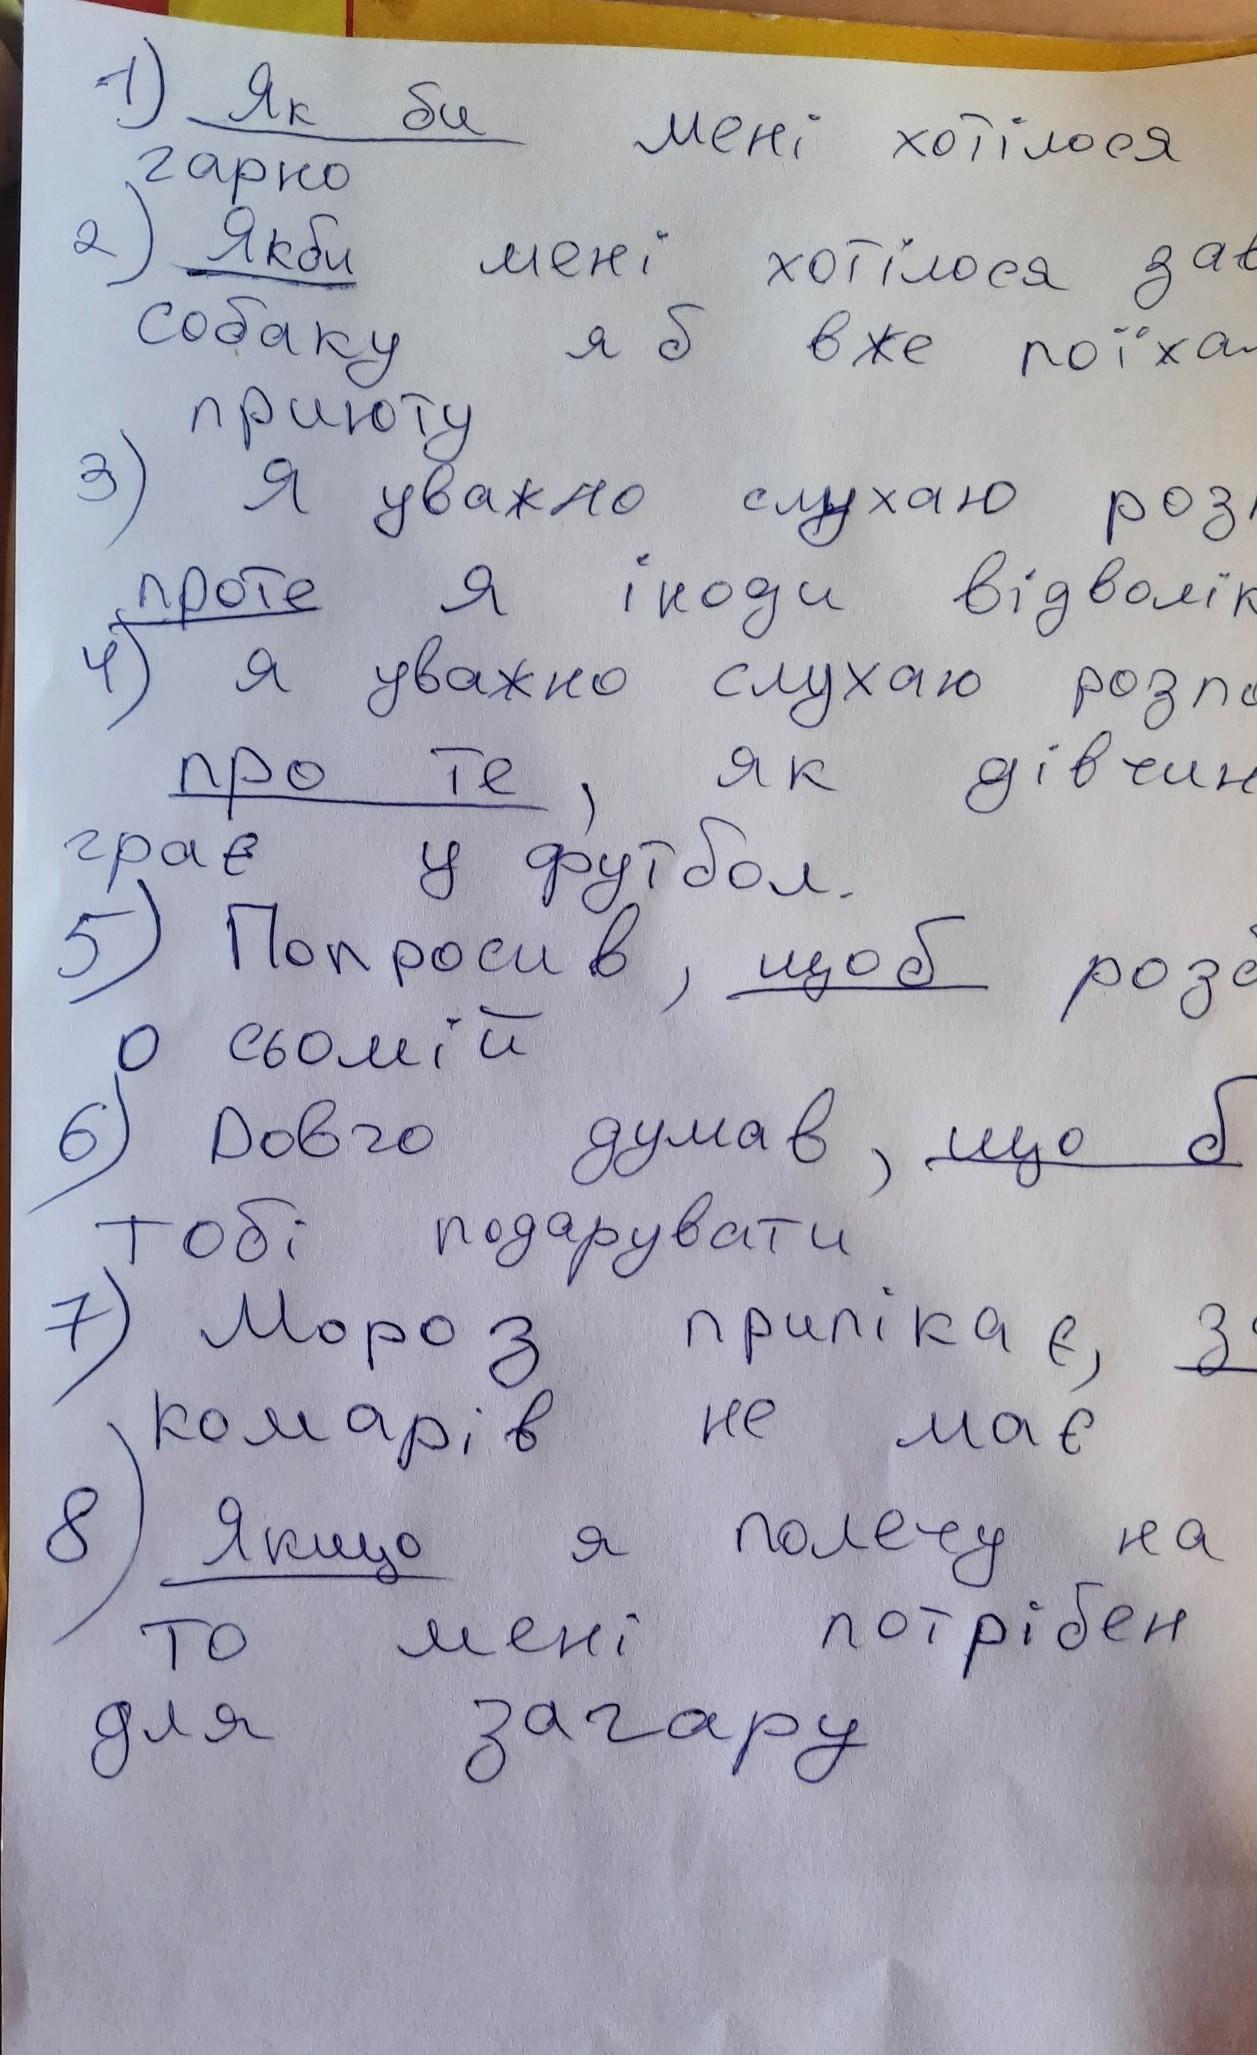 1) Як би мені хотілося
гарно
2) Якби мені хотілося
собаку я б вже
приюту
3) Я уважно слухаю
проте я іноди
4) Я уважно слухаю
про те, як
грає у футбол.
5) Попросив, щоб
о сьомій
6) Довго думав, що б
тобі подарувати
7) Мороз припікає,
комарів не має
8) Якщо я полечу на
то мені потрібен
для загару